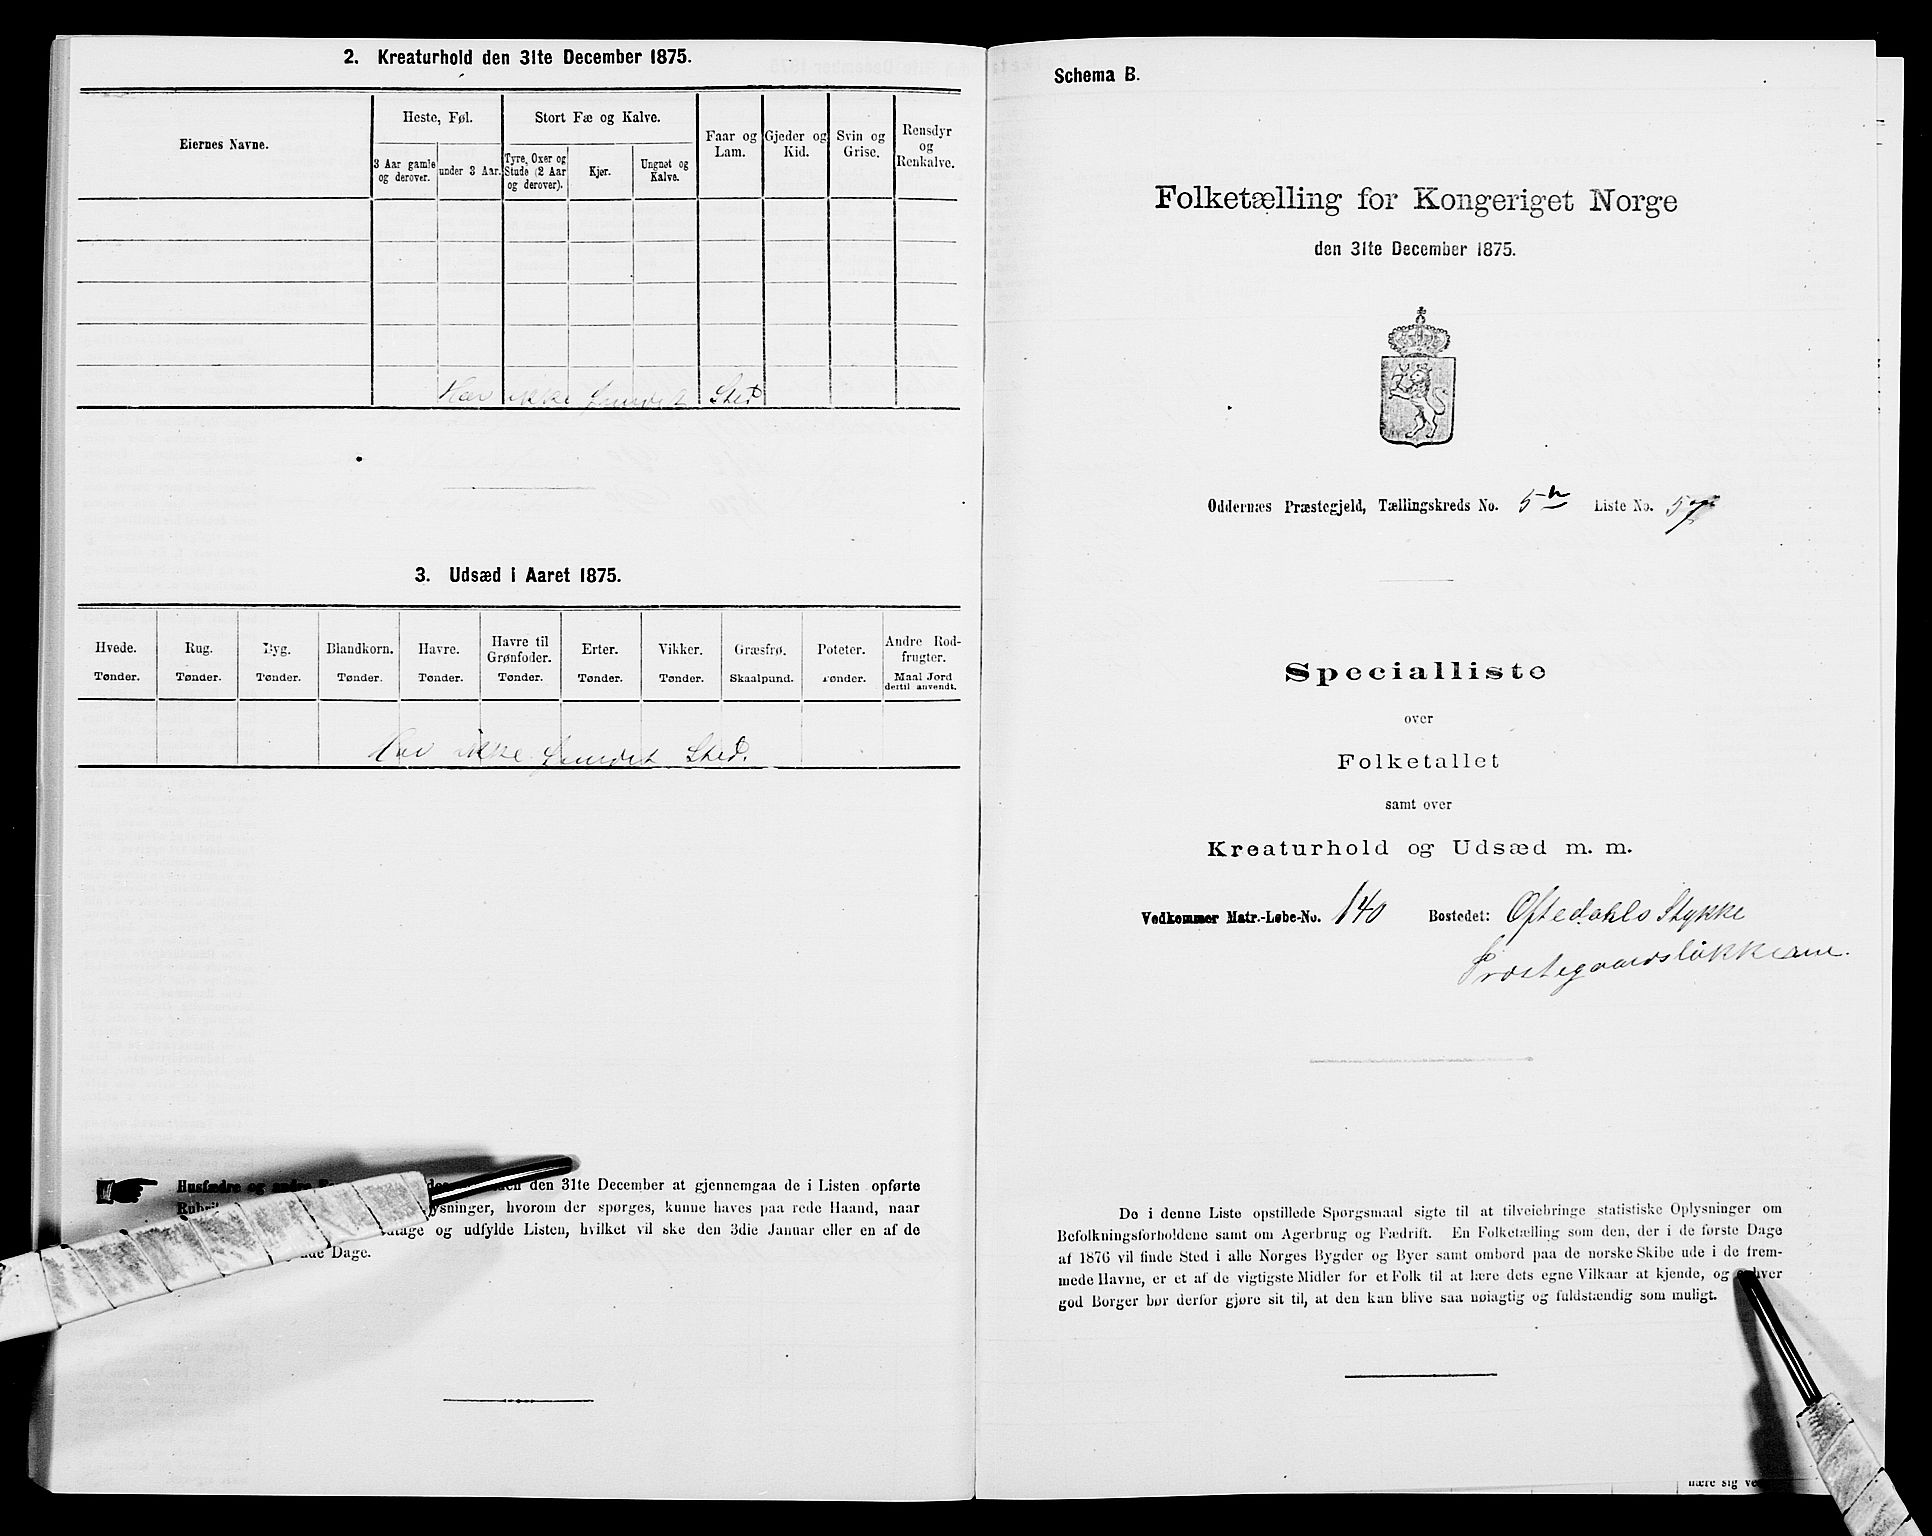 2. Kreaturhold den 31te December 1875.
Eiernes Navne.
Heste, Føl.
Stort Fæ og Kalve.
Faar og Lam.
Gjeder og Kid.
Svin og Grise.
Rensdyr og Renkalve.
3 Aar gamle og derover.
under 3 Aar.
Tyre, Oxer og Stude (2 Aar og derover).
Kjør.
Ungnøt og Kalve.
Har ikke fundet Sted
3. Udsæd i Aaret 1875.
Hvede.
Rug.
Byg.
Blandkorn.
Havre.
Havre til Grønfoder.
Erter.
Vikker.
Græsfrø.
Poteter.
Andre Rodfrugter.
Tønder.
Tønder.
Tønder.
Tønder.
Tønder.
Tønder.
Tønder.
Tønder.
Skaalpund.
Tønder.
Maal Jord dertil anvendt.
Har ikke fundet Sted.
Husfædre og andre den 31te December at gjennemgaa de i Listen opførte
hvorom der spørges, kunne haves paa rede Haand, naar
og udfylde Listen, hvilket vil ske den 3die Januar eller en af de
Dage.
Schema B.
Folketælling for Kongeriget Norge
den 31te December 1875.
Oddernæs Præstegjeld, Tællingskreds No. 5te Liste No.
Specialliste
over
Folketallet
samt over
Kreaturhold og Udsæd m. m.
Vedkommer Matr.-Løbe-No. 140 Bostedet: Oftedahls Stykke
Præstegaardsløkkerne.
De i denne Liste opstillede Spørgsmaal sigte til at tilveiebringe statistiske Oplysninger om
Befolkningsforholdene samt om Agerbrug og Fædrift. En Folketælling som den, der i de første Dage
af 1876 vil finde Sted i alle Norges Bygder og Byer samt ombord paa de norske Skibe ude i de frem-
mede Havne, er et af de vigtigste Midler for et Folk til at lære dets egne Vilkaar at kjende, og enhver
god Borger bør derfor gjøre sit til, at den kan blive saa nøiagtig og fuldstændig som muligt.